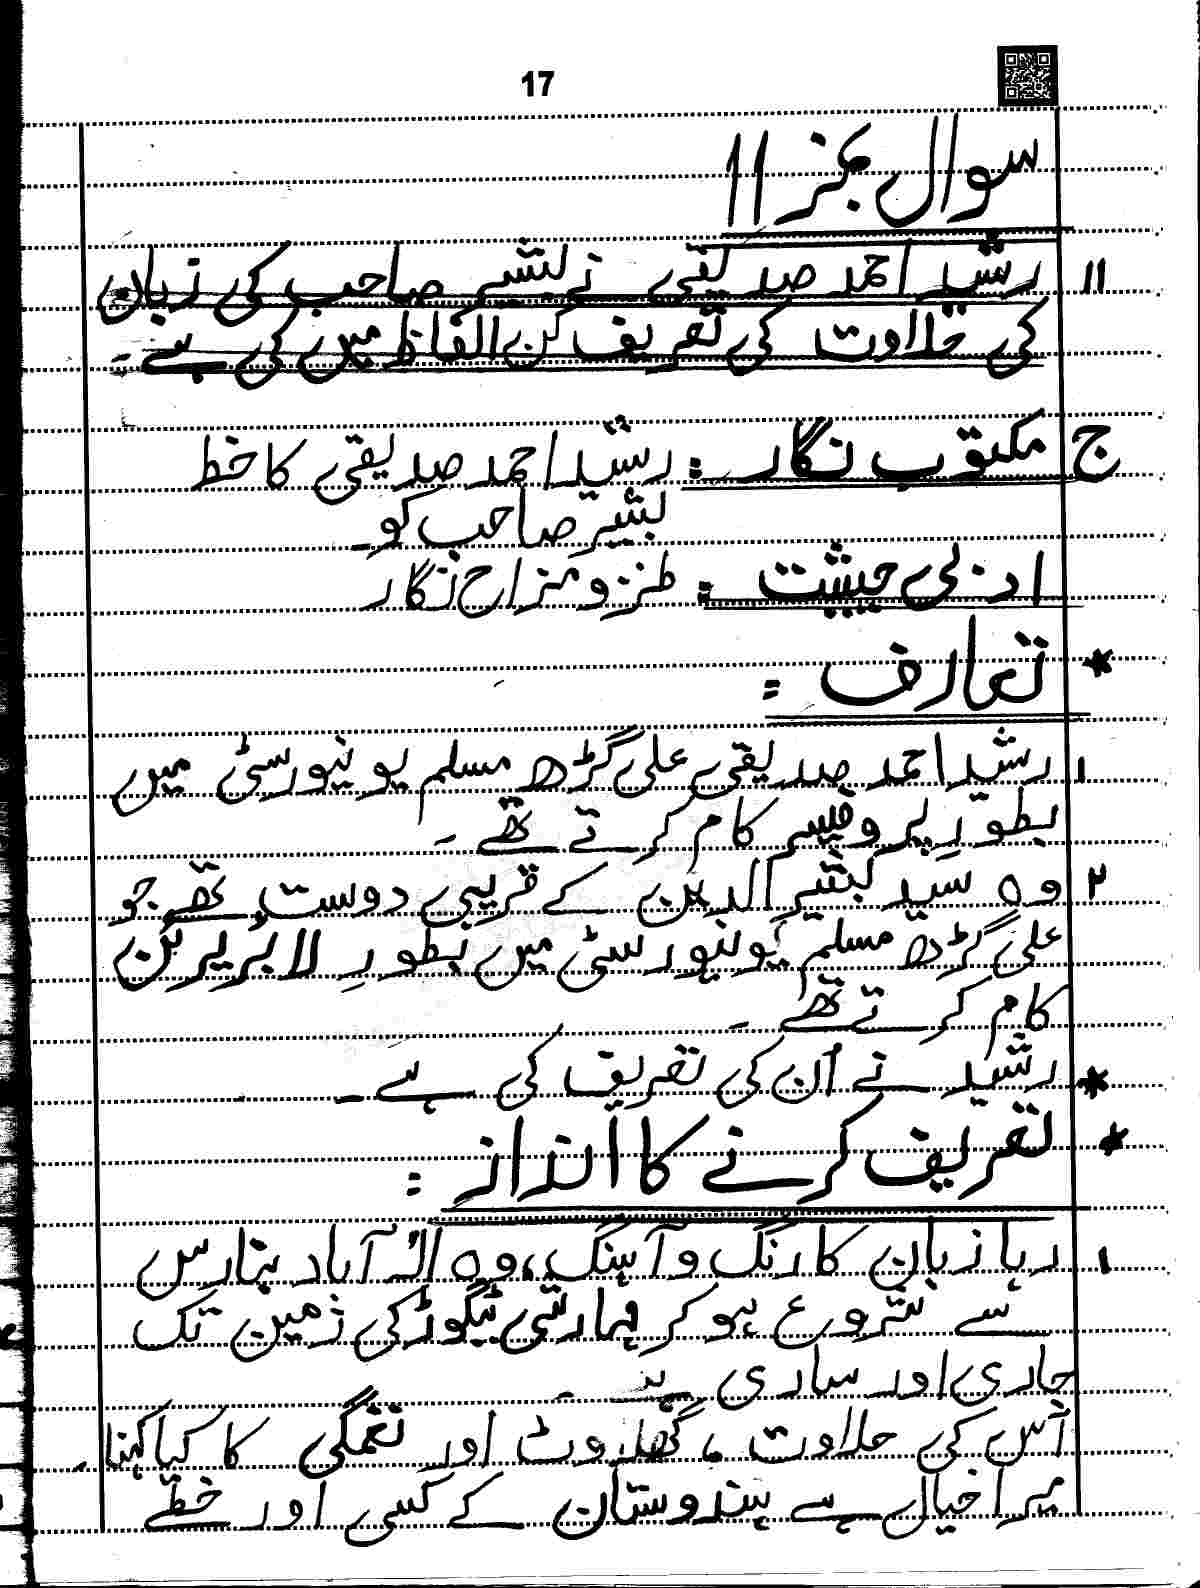 17
سوال نمبر 11
11 رشید احمد صدیقی نے بشیر صاحب کی زبان
کی حلاوت کی تعریف کن الفاظ میں کی ہے۔
ج مکتوب نگار : رشید احمد صدیقی کا خط
بشیر صاحب کو۔
ادبی حیثیت : طنز و مزاح نگار
* تعارف :
۱ رشید احمد صدیقی علی گڑھ مسلم یونیورسٹی میں
بطورِ پروفیسر کام کرتے تھے۔
۲ وہ سید بشیر الدین کے قریبی دوست تھے جو
علی گڑھ مسلم یونیورسٹی میں بطورِ لائبریرین
کام کرتے تھے۔
* رشید نے اُن کی تعریف کی ہے۔
* تعریف کرنے کا انداز :
۱ رہا زبان کا رنگ و آہنگ، وہ الہ آباد بنارس
سے شروع ہو کر مہارشی ٹیگور کی زمین تک
جاری اور ساری ہے۔
اس کی حلاوت، گھلاوٹ اور نغمگی کا کیا کہنا۔
میرا خیال ہے ہندوستان کے کسی اور خطے